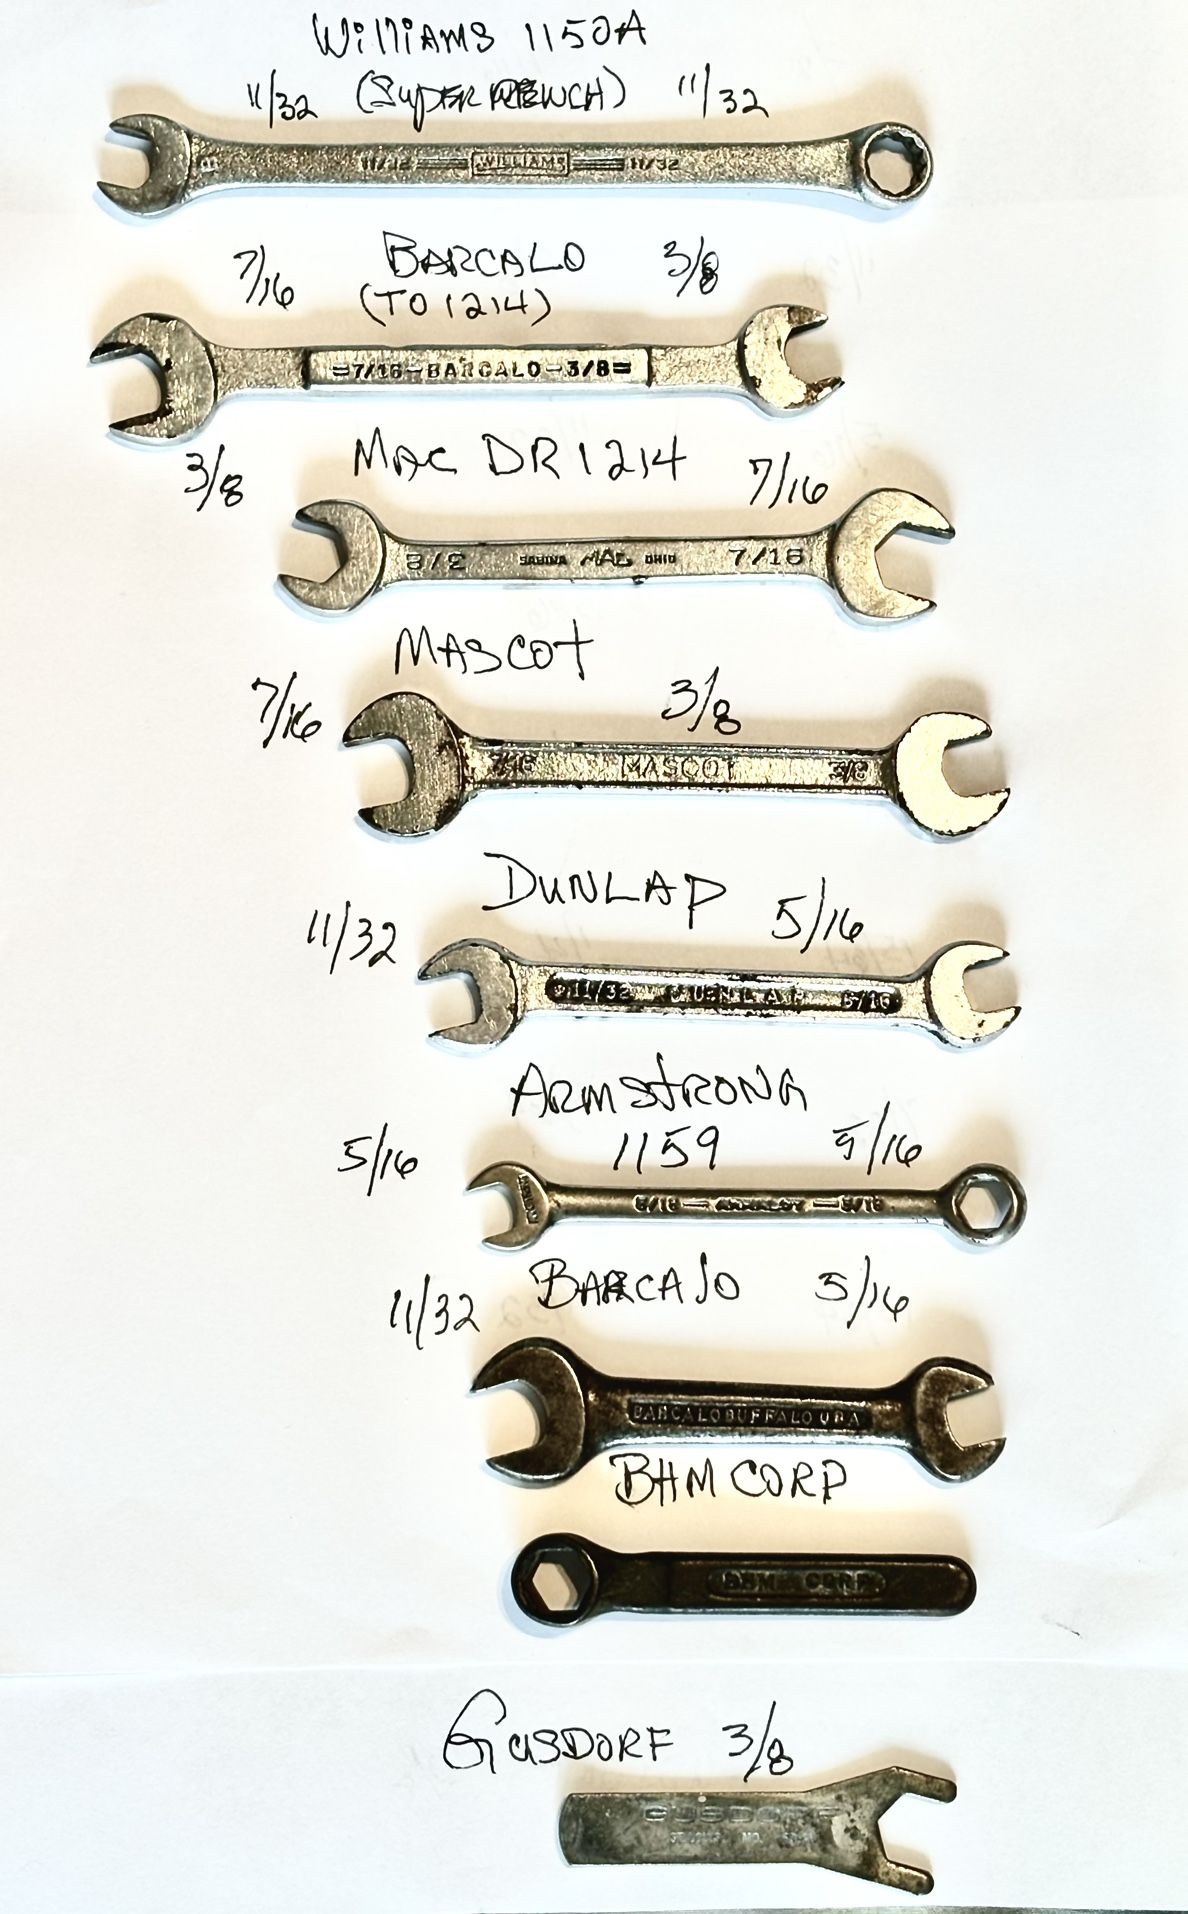 WilliAMS 1150A
11/32 (SupER WRENCH) 11/32
11/32 WILLIAMS 11/32
7/16 BARCALO 3/8
(TO 1214)
=7/16-BARCALO-3/8=
3/8 MAC DR1214 7/16
3/8 SABINA MAC OHIO 7/16
MASCOT
7/16 3/8
7/16 MASCOT 3/8
DUNLAP
11/32 5/16
11/32 DUNLAP 5/16
ARMSTRONG
5/16 1159 5/16
5/16 — — 5/16
11/32 BARCAlO 5/16
BARCALO BUFFALO USA
BHM CORP
BHM CORP
GUSDORF 3/8
GUSDORF
ST. LOUIS, MO.